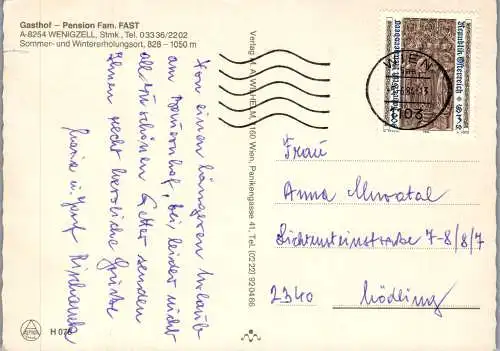 Gasthof – Pension Fam. FAST
A-8254 WENIGZELL, Stmk., Tel. 03336/2202
Sommer- und Wintererholungsort, 828 – 1050 m
Von einem längeren Urlaub
am Bauernhof, bei leider nicht
all zu schönen Wetter senden
Ihnen recht herzliche Grüße
Maria u. Josef
Verlag M. A. WILHELM, 1160 Wien, Panikengasse 41, Tel. (0222) 920486
WIEN
1103
Republik Österreich
Frau
Anna
Lichtensteinstraße 7-8/8/7
2340 Mödling
H 078